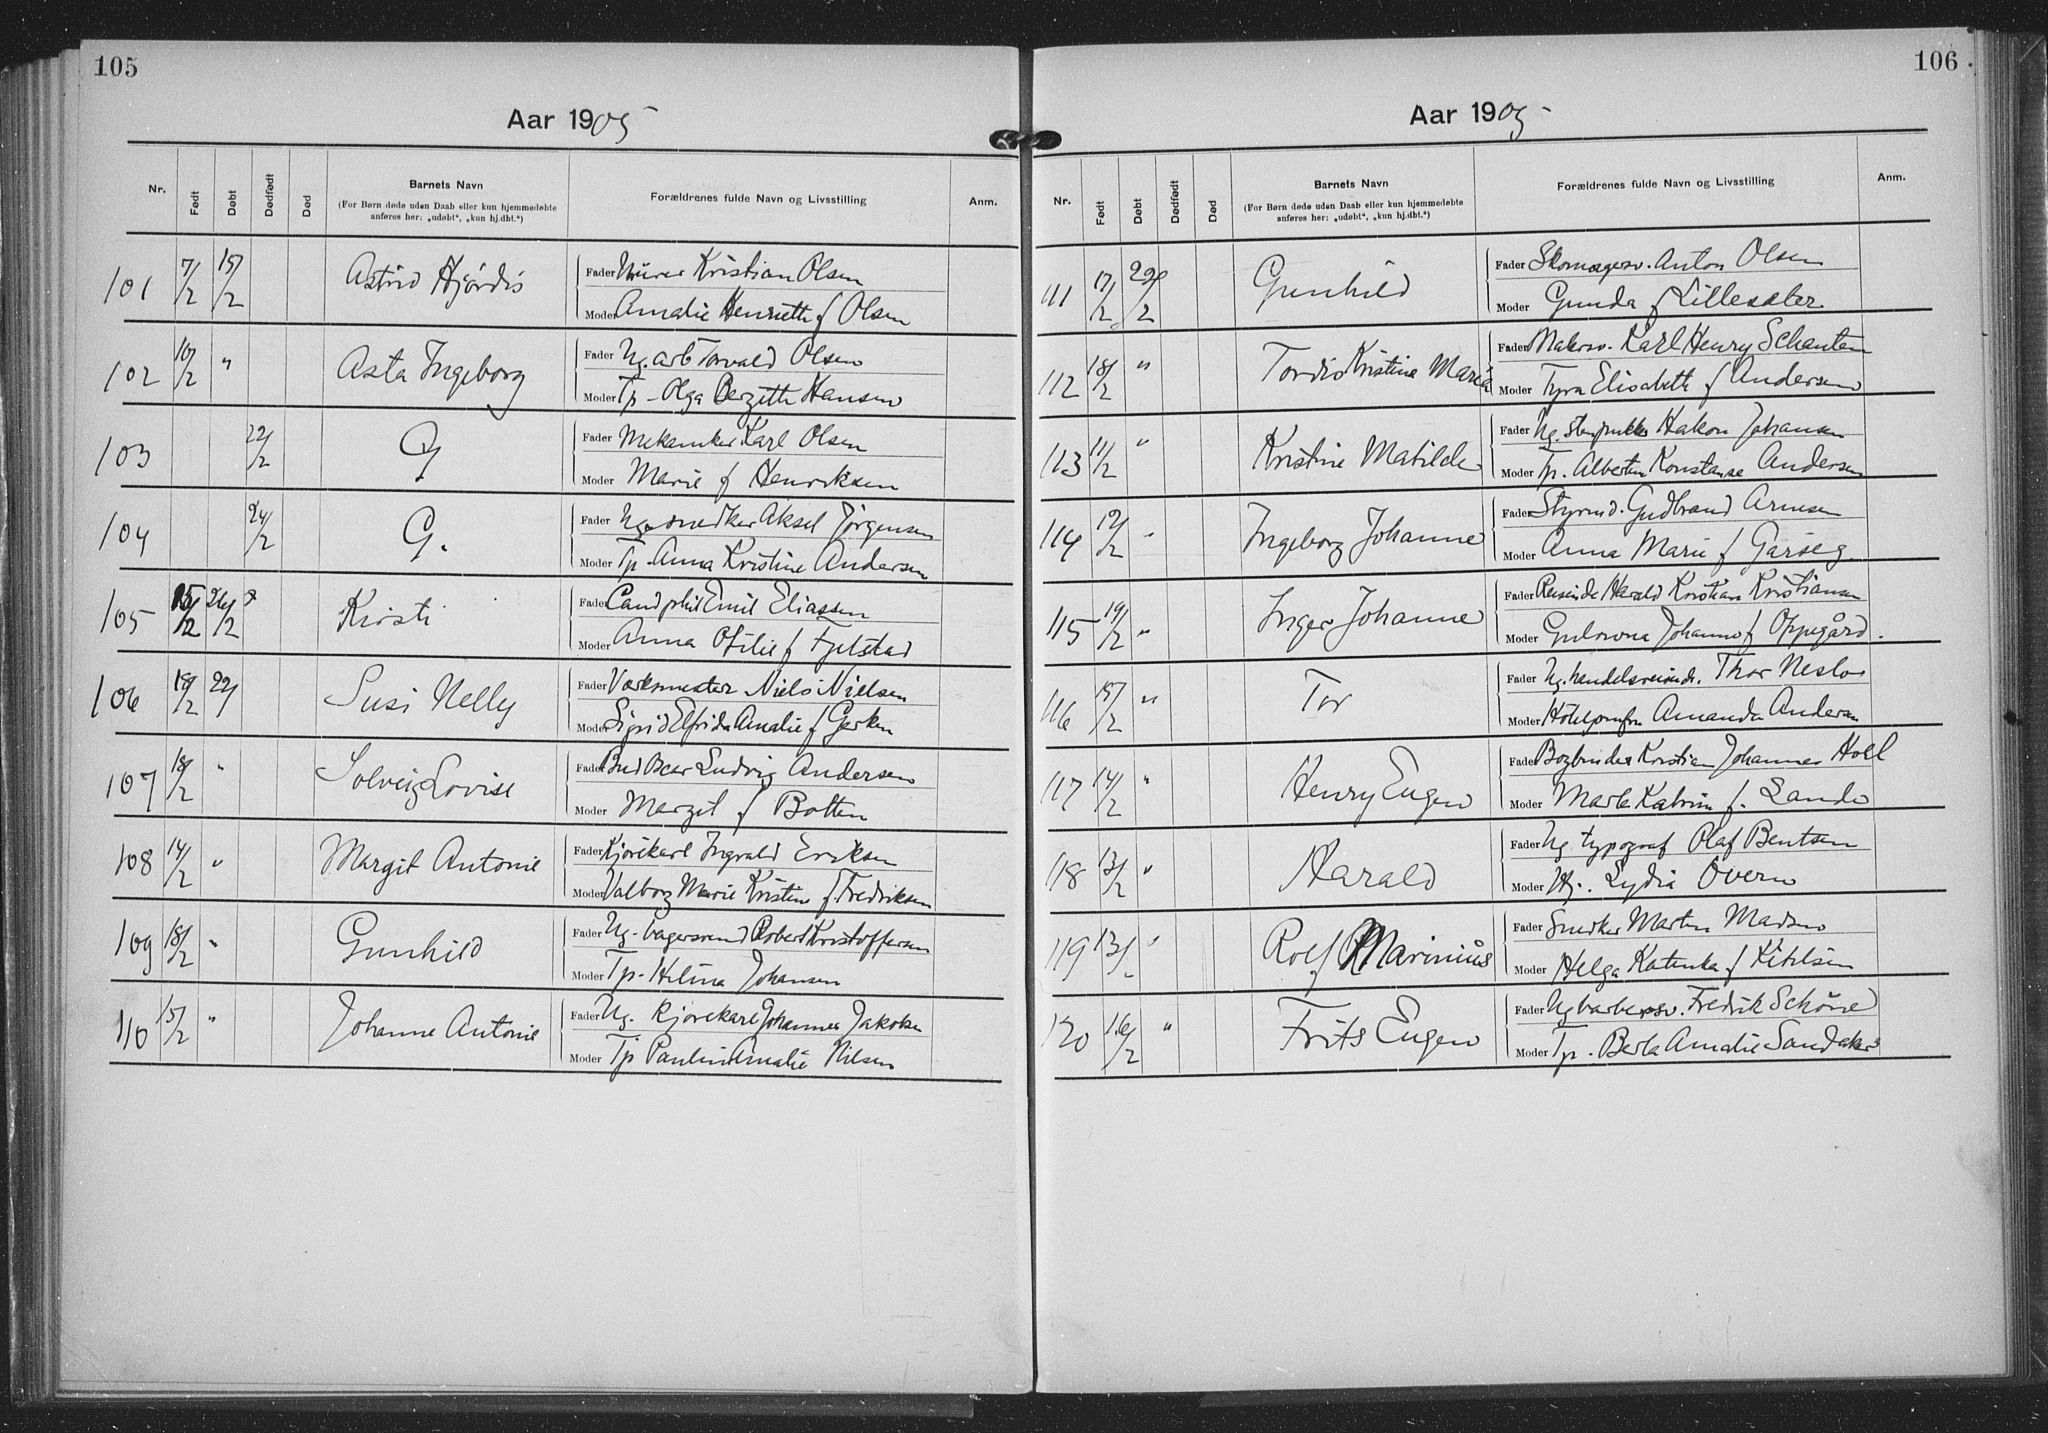 105
Aar 1905
Nr.
Født
Døbt
Dødfødt
Død
Barnets Navn
(For Børn døde uden Daab eller kun hjemmedøbte
anføres her: „udøbt“, „kun hj.dbt.“)
Forældrenes fulde Navn og Livsstilling
Anm.
101 7/2 15/2 Astrid Hjørdis
Fader Murer Kristian Olsen
Moder Amalie Henriette f Olsen
102 10/2 " Asta Ingeborg
Fader Ug. arb Torvald Olsen
Moder Tp - Olga Bergitte Hansen
103 22/2 G
Fader Karl Olsen
Moder Marie f Henriksen
104 24/2 G.
Fader Ug. snedker Aksel Jørgensen
Moder Tp. Anna Kristine Andersen
105 15/2 26/2 Kirsti
Fader Cand phil Emil Eliassen
Moder Anna Otilie f Fjelstad
106 18/2 22/ Susi Nelly
Fader Værksmester Niels Nielsen
Moder Sigrid Elfrida Amalie f Gerken
107 18/2 " Solveig Lovise
Fader Bud Oscar Ludvig Andersen
Moder Margit f Botten
108 14/2 " Margit Antonie
Fader Kjørekarl Ingvald Eriksen
Moder Valborg Marie Kristine f. Fredriksen
109 18/2 " Gunhild
Fader Ug. bagersvend Robert Kristoffersen
Moder Tp - Helina Johansen
110 15/2 " Johanne Antonie
Fader Ug. kjørekarl Johannes Jakobsen
Moder Tp Pauline Amalie Nilsen
106
Aar 1905
Nr.
Født
Døbt
Dødfødt
Død
Barnets Navn
(For Børn døde uden Daab eller kun hjemmedøbte
anføres her: „udøbt“, „kun hj.dbt.“)
Forældrenes fulde Navn og Livsstilling
Anm.
111 17/2 22/2 Gunhild
Fader Skomagersv. Anton Olsen
Moder Gunda f Lillesæter
112 18/2 " Tordis Kristine Maria
Fader Malersv. Karl Henry Schanten
Moder Tyra Elisabeth f Andersen
113 11/2 " Kristine Matilde
Fader Ug. Hakon Johansen
Moder Tp. Albertine Konstanse Andersen
114 12/2 " Ingeborg Johanne
Fader Styrmd. Gudbrand Arnesen
Moder Anna Marie f Garseg
115 19/2 " Inger Johanne
Fader Reisende Harald Kristian Kristiansen
Moder Johanne f Oppegård.
116 15/2 " Tor
Fader Ug. handelsreisende. Thor Neslow
Moder Amanda Andersen
117 14/2 " Henry Eugen
Fader Bogbinder Kristian Johannes Holl
Moder Marte Katrine f. Lande
118 13/2 " Harald
Fader Ug typograf Olaf Bentsen
Moder Lydia Overn
119 13/ " Rolf Marinius
Fader Snedker Martin Madsen
Moder Helga Katinka f Kitilsen
120 16/2 " Frits Eugen
Fader Ug barbersv. Fredrik Schøne
Moder Tp. Berta Amalie Sandaker